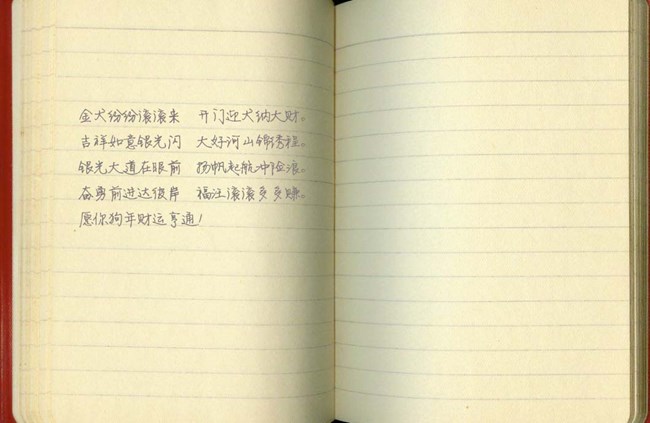 金犬纷纷滚滚来 开门迎犬纳大财。
吉祥如意银光闪 大好河山锦秀程。
银光大道在眼前 扬帆起航冲险浪。
奋勇前进达彼岸 福注滚滚多多赚。
愿你狗年财运亨通!